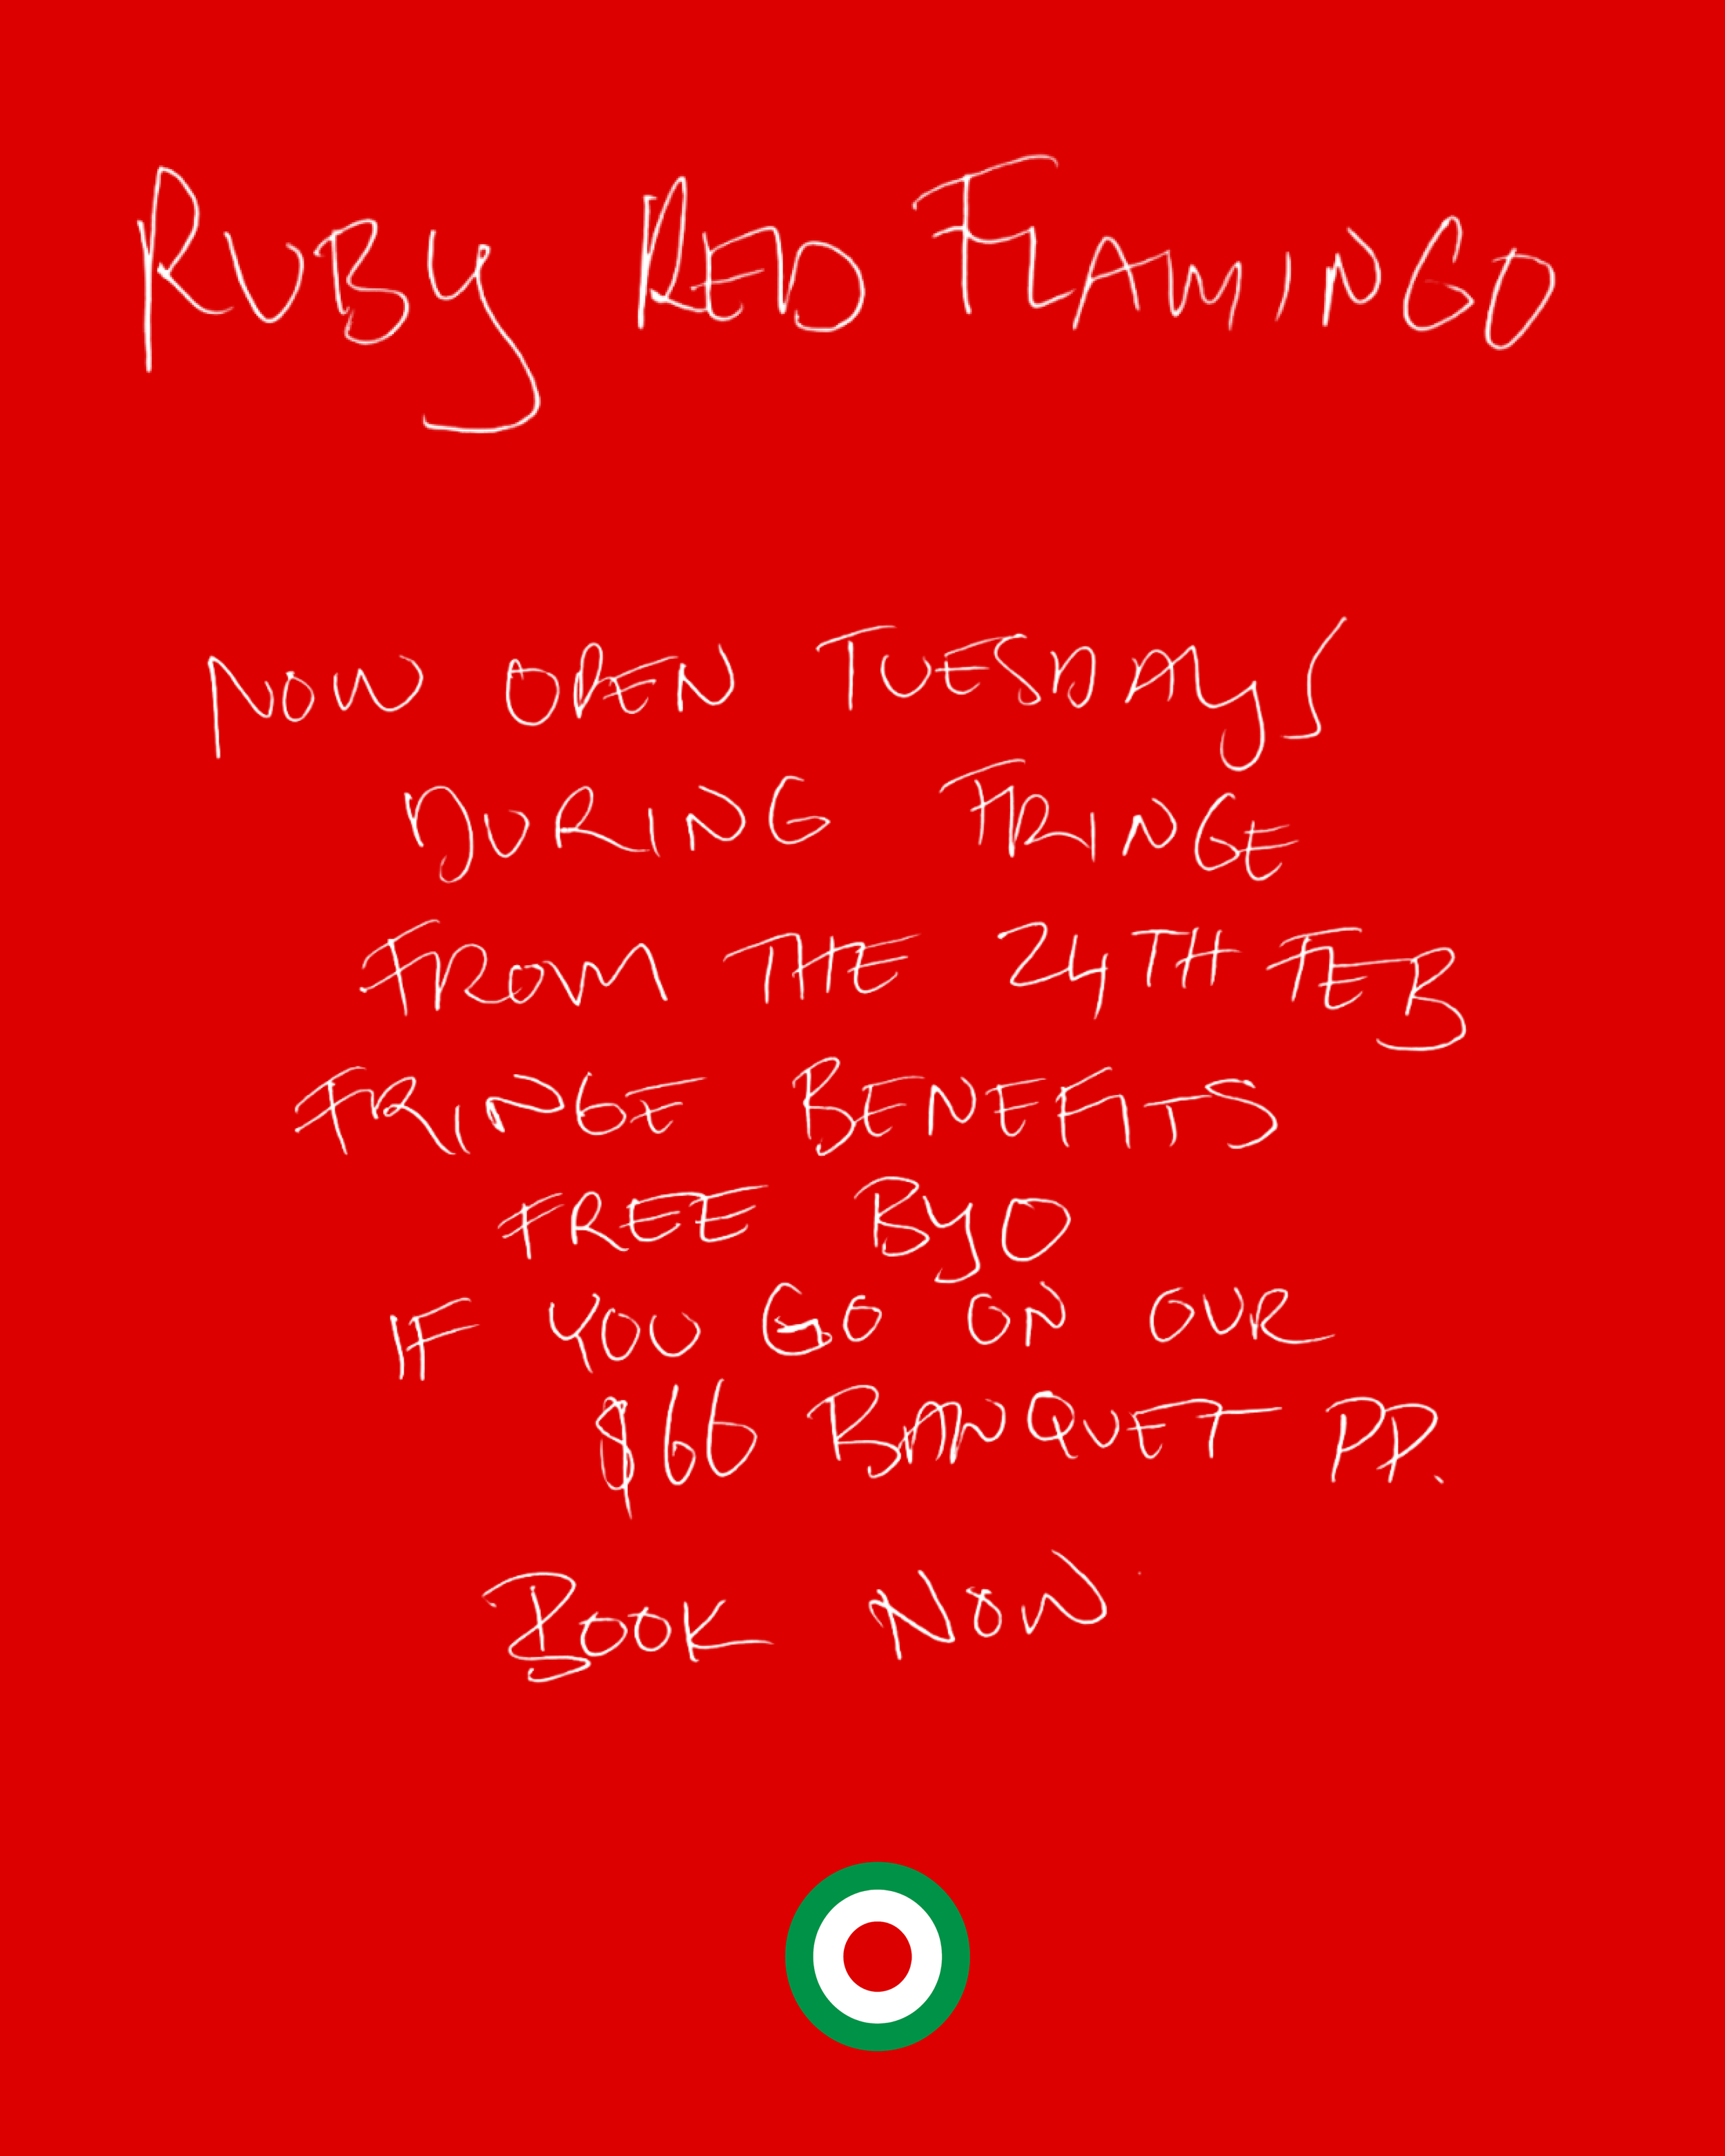 RUBY RED FLAMINGO
NOW OPEN TUESDAYS
DURING FRINGE
FROM THE 24TH FEB
FRINGE BENEFITS
FREE BYO
IF YOU GO ON OUR
$66 BANQUET PP.
BOOK NOW.